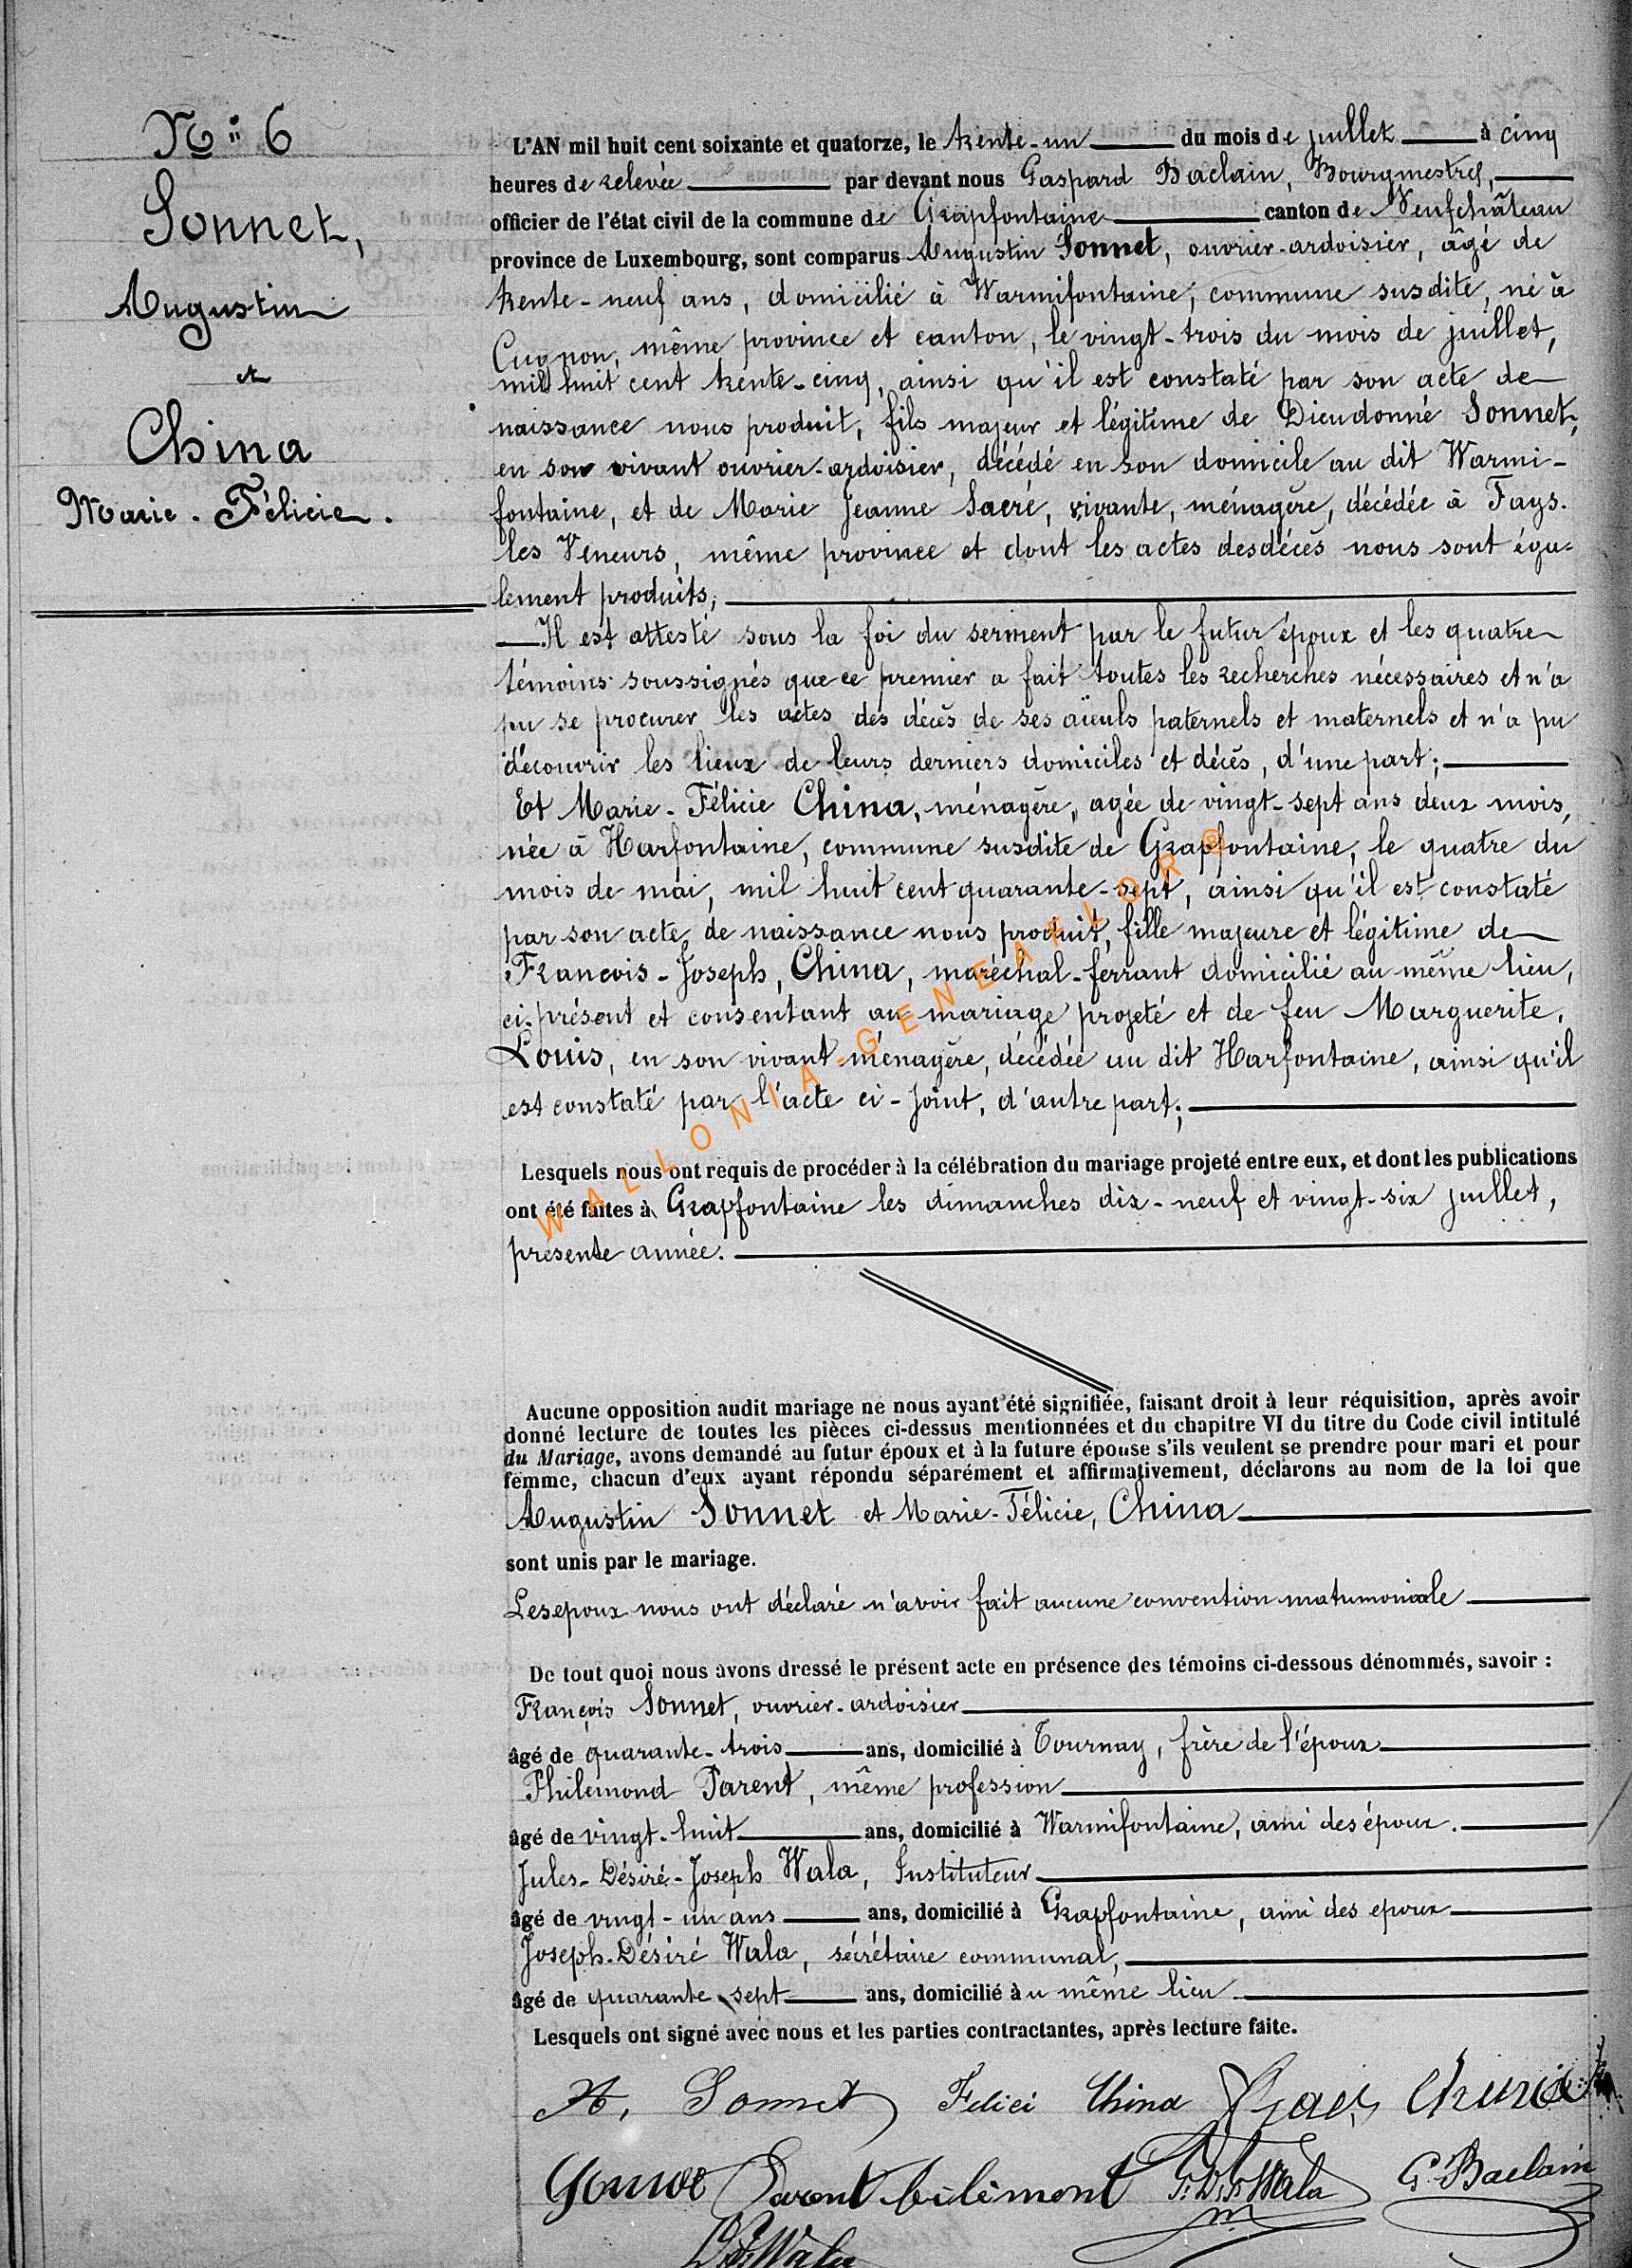 N° 6
Sonnet,
Augustin
et
China
Marie-Félicie.
L'AN mil huit cent soixante et quatorze, le trente-un du mois de juillet à cinq
heures de relevée par devant nous Gaspard Baclain, Bourgmestre,
officier de l'état civil de la commune de Grapfontaine canton de Neufchâteau
province de Luxembourg, sont comparus Augustin Sonnet, ouvrier-ardoisier, âgé de
trente-neuf ans, domicilié à Warmifontaine, commune susdite, né à
Cugnon, même province et canton, le vingt-trois du mois de juillet,
mil huit cent trente-cinq, ainsi qu'il est constaté par son acte de
naissance nous produit, fils majeur et légitime de Dieudonné Sonnet,
en son vivant ouvrier-ardoisier, décédé en son domicile au dit Warmi-
fontaine, et de Marie Jeanne Sacré, vivante, ménagère, décédée à Fays-
les Veneurs, même province et dont les actes des décès nous sont éga-
lement produits;
Il est attesté sous la foi du serment par le futur époux et les quatre
témoins soussignés que ce premier a fait toutes les recherches nécessaires et n'a
pu se procurer les actes des décès de ses aïeuls paternels et maternels et n'a pu
découvrir les lieux de leurs derniers domiciles et décès, d'une part;
Et Marie-Félicie China, ménagère, agée de vingt-sept ans deux mois,
née à Harfontaine, commune susdite de Grapfontaine, le quatre du
mois de mai, mil huit cent quarante-sept, ainsi qu'il est constaté
par son acte de naissance nous produit, fille majeure et légitime de
François-Joseph, China, maréchal-ferrant domicilié au même lieu,
ci-présent et consentant au mariage projeté et de feu Marguerite,
Louis, en son vivant ménagère, décédée au dit Harfontaine, ainsi qu'il
est constaté par l'acte ci-joint, d'autre part;
WALLONIA-GENEAFLOR ®
Lesquels nous ont requis de procéder à la célébration du mariage projeté entre eux, et dont les publications
ont été faites à Grapfontaine les dimanches dix-neuf et vingt-six juillet,
présente année.
Aucune opposition audit mariage ne nous ayant été signifiée, faisant droit à leur réquisition, après avoir
donné lecture de toutes les pièces ci-dessus mentionnées et du chapitre VI du titre du Code civil intitulé
du Mariage, avons demandé au futur époux et à la future épouse s'ils veulent se prendre pour mari et pour
femme, chacun d'eux ayant répondu séparément et affirmativement, déclarons au nom de la loi que
Augustin Sonnet et Marie-Félicie, China
sont unis par le mariage.
Les epoux nous ont déclaré n'avoir fait aucune convention matrimoniale
De tout quoi nous avons dressé le présent acte en présence des témoins ci-dessous dénommés, savoir :
François Sonnet, ouvrier-ardoisier
âgé de quarante-trois ans, domicilié à Tournay, frère de l'époux
Philemond Parent, même profession
âgé de vingt-huit ans, domicilié à Warmifontaine, ami des époux.
Jules-Désiré-Joseph Wala, Instituteur
âgé de vingt-un ans ans, domicilié à Grapfontaine, ami des epoux
Joseph-Désiré Wala, sécrétaire communal,
âgé de quarante sept ans, domicilié à u même lieu
Lesquels ont signé avec nous et les parties contractantes, après lecture faite.
A. Sonnet Felici China
Parent G. Baclain
Wala